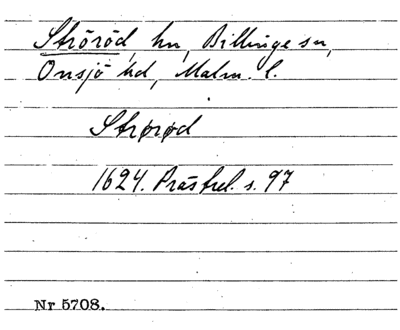 Ströröd, hn, Billinge sn,
Onsjö hd, Malm. l.
Strørød
1624. Prästrel. s. 97
Nr 5708.